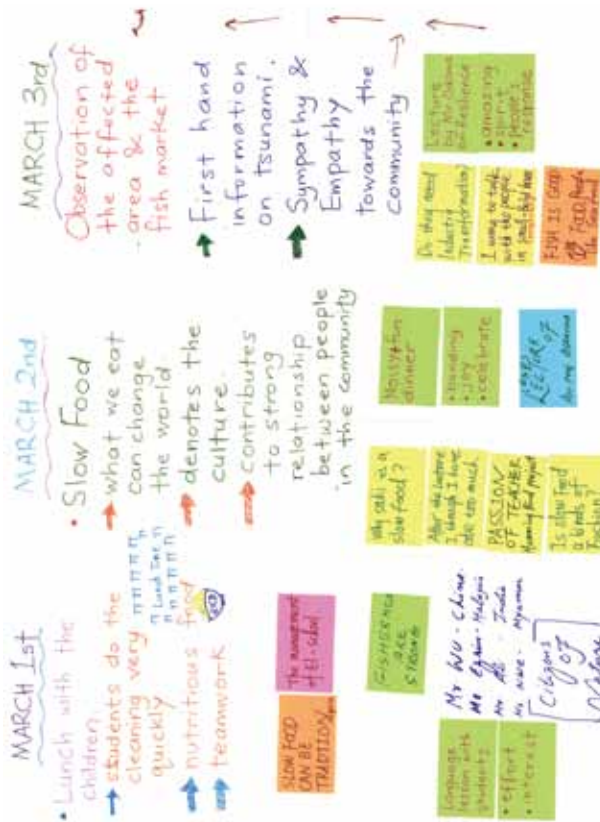 MARCH 1st
• Lunch with the
children.
→ students do the
cleaning very
quickly
→ nutritious food
→ teamwork
Lunch Time
SLOW FOOD
CAN BE
TRADITION
The management
of el. school
FISHERMEN
ARE
STRONG
Language
lesson with
students
• effort
• interest
Mr WU - China
Malaysia
India
Myanmar
Citizens
OF
MARCH 2nd
• Slow Food
→ what we eat
can change
the world
→ denotes the
culture
→ contributes
to strong
relationship
between people
in the community
Why sushi is a
slow food?
After the lecture
I have
ate too much
PASSION
OF TEACHER
Is slow food
a kinds of
fashion?
Noisy & fun
dinner
• bonding
• joy
• celebrate
LECTURE
OF
MARCH 3rd
Observation of
the affected
area & the
fish market
→ First hand
information
on tsunami.
→ Sympathy &
Empathy
towards the
community
Do they need
Industry
Transformation?
I want to talk
with the people
in
FISH IS GOOD
FOOD
Lecture
by
on Resilience
• amazing
• spirit
• people's
response